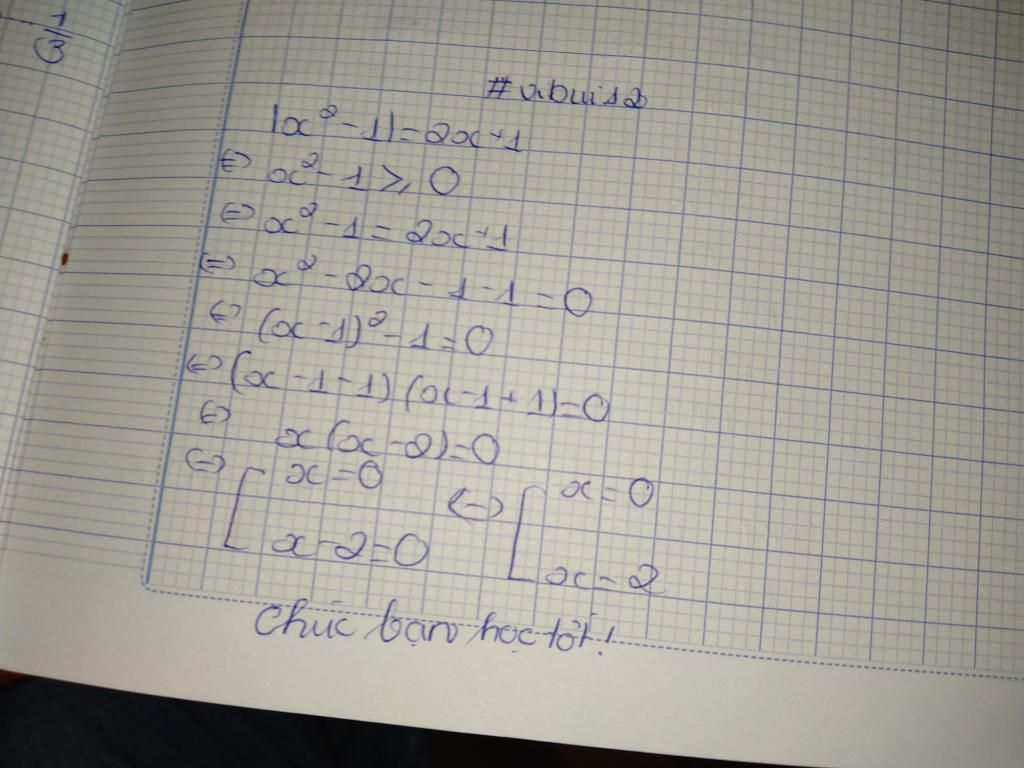 1/3
# abui12
|x² - 1| = 2x + 1
⇔ x² - 1 ⩾ 0
⇔ x² - 1 = 2x + 1
⇔ x² - 2x - 1 - 1 = 0
⇔ (x - 1)² - 1 = 0
⇔ (x - 1 - 1) (x - 1 + 1) = 0
⇔ x(x - 2) = 0
⇔ [ x = 0 ⇔ [ x = 0
x - 2 = 0 x = 2
Chúc bạn học tốt!